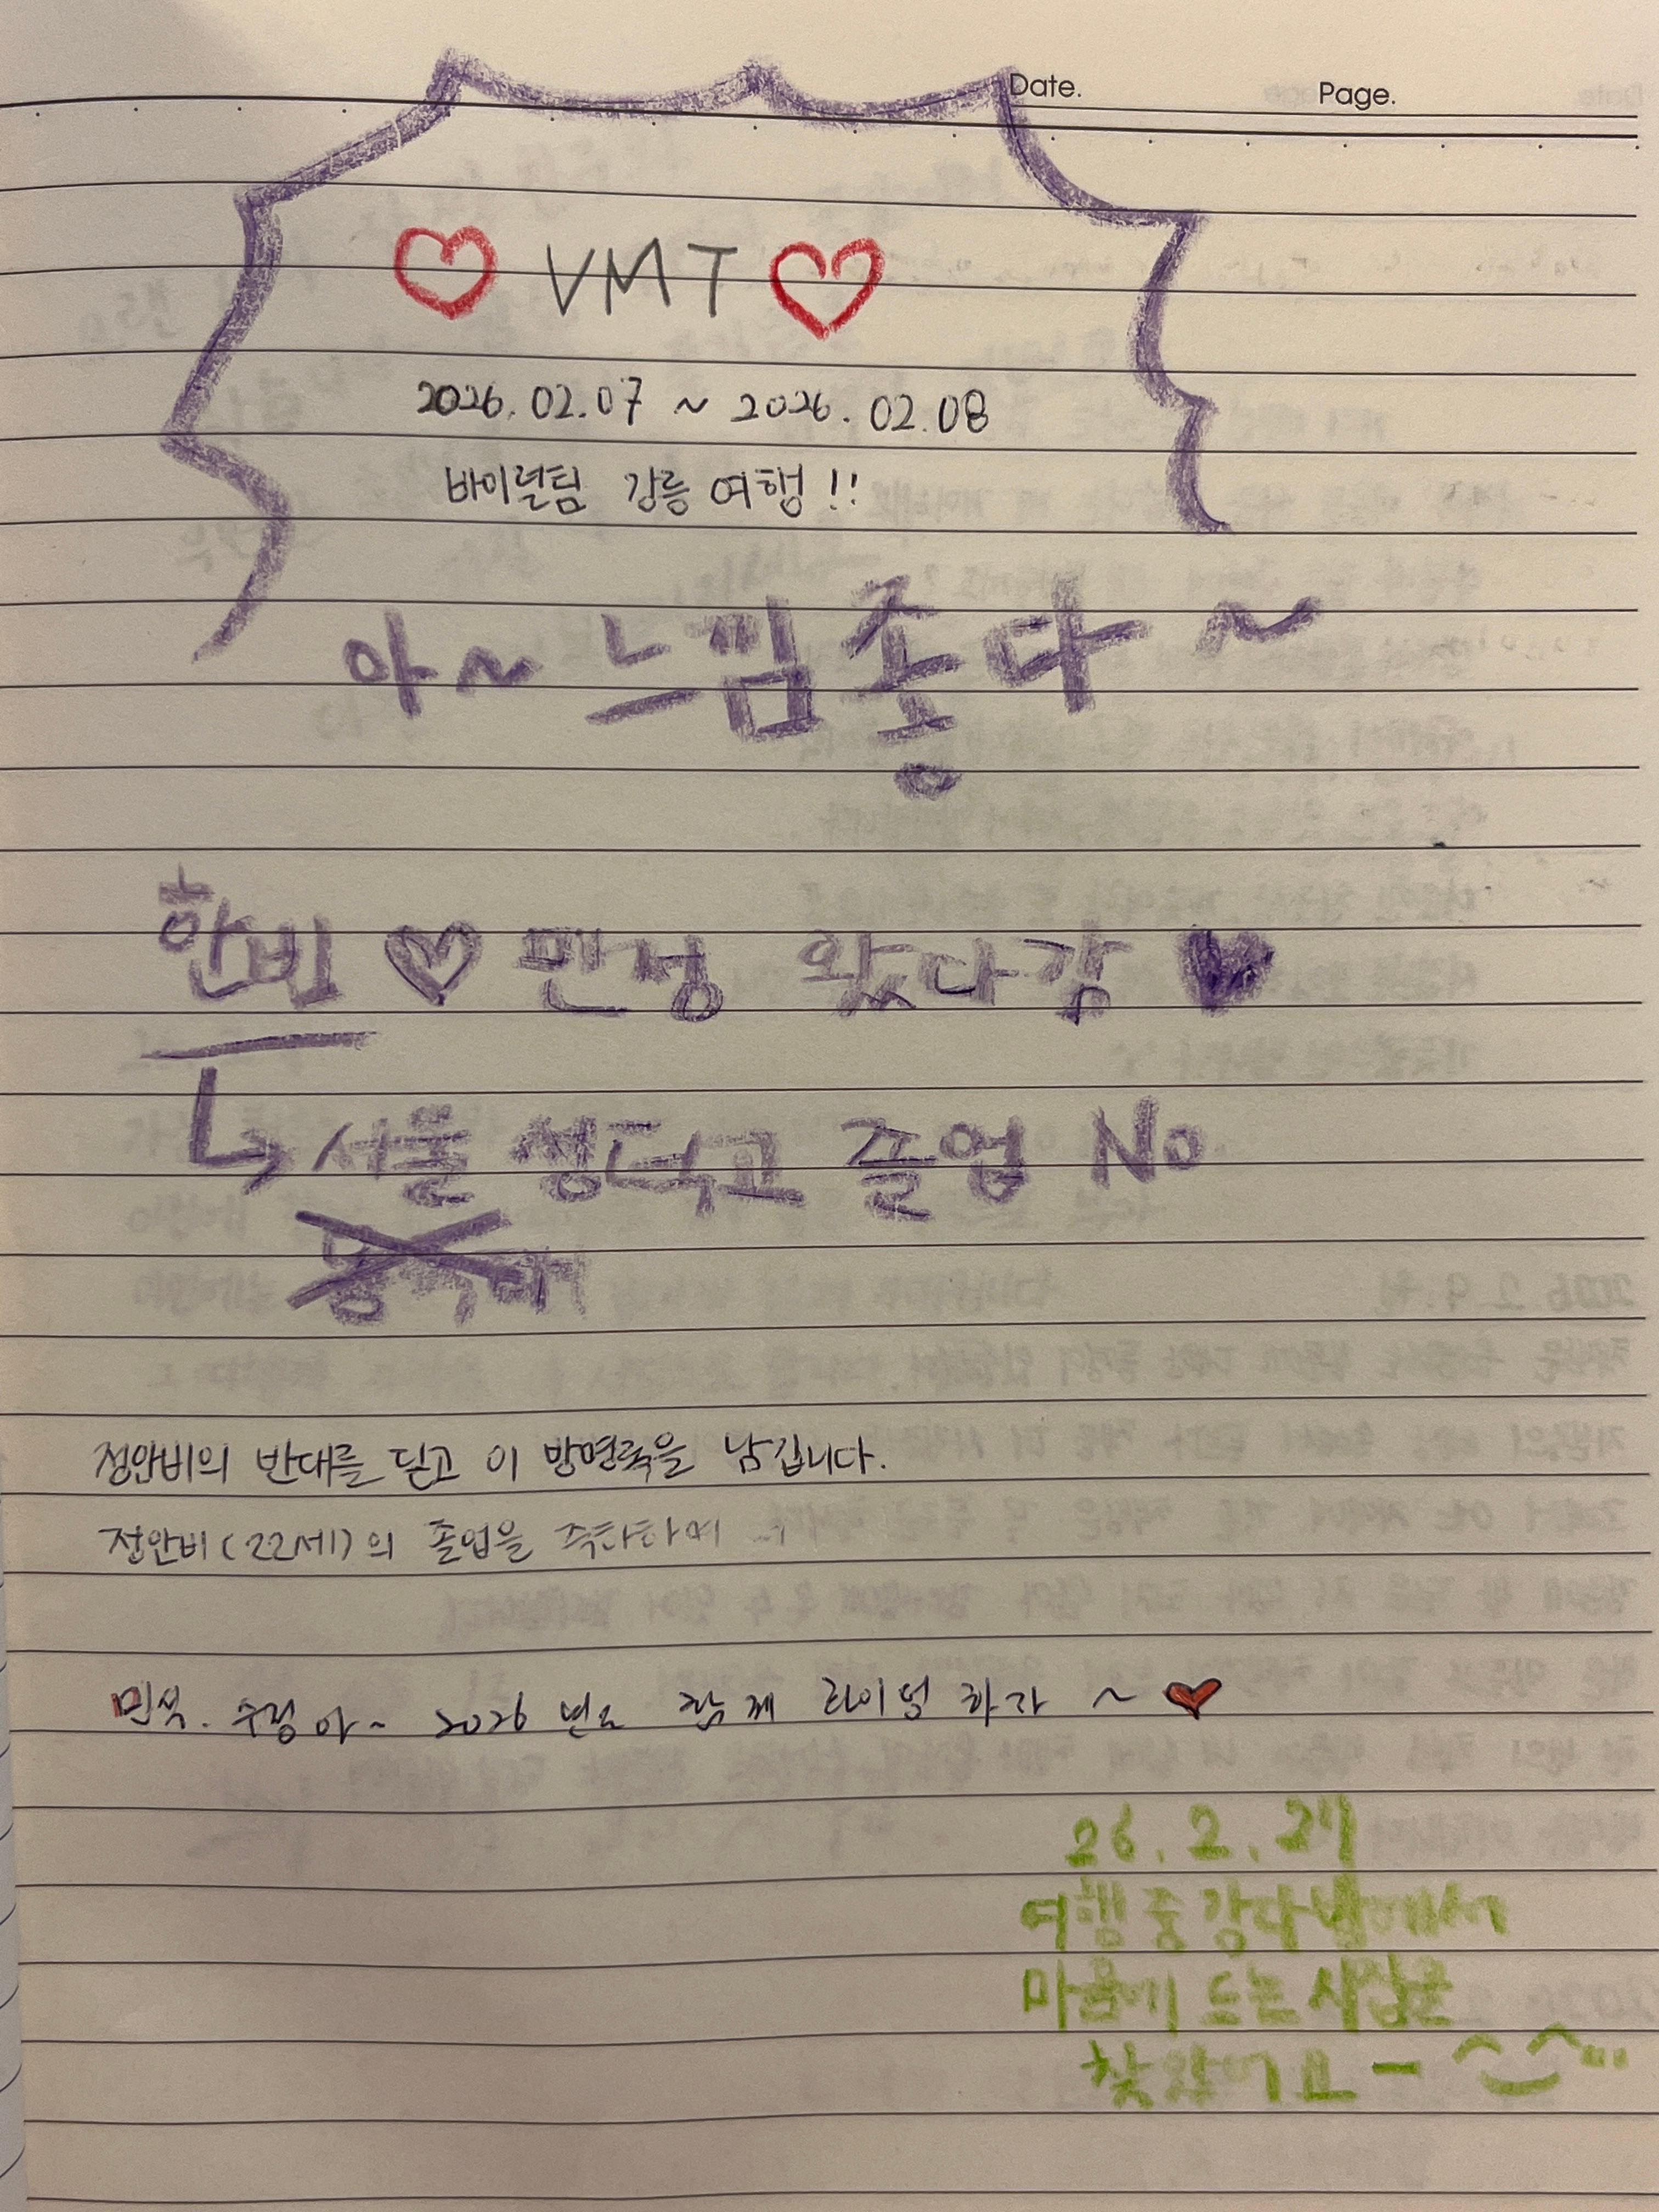 Date. Page.
♡ VMT ♡
2026. 02. 07 ~ 2026. 02. 08
바이럴팀 강릉 여행!!
아~ 느낌 좋다~
한빈 ♡ 민성 왔다감 ♥
↳ 서울 졸업 No
정안비의 반대를 딛고 이 방명록을 남깁니다.
정안비(22세)의 졸업을 축하하며
민석. 수정아~ 2026년도 함께 라이딩 하자~ ♥
26. 2. 27
여행 중 강다방에서
마음에 드는 사진을
찾았어요-